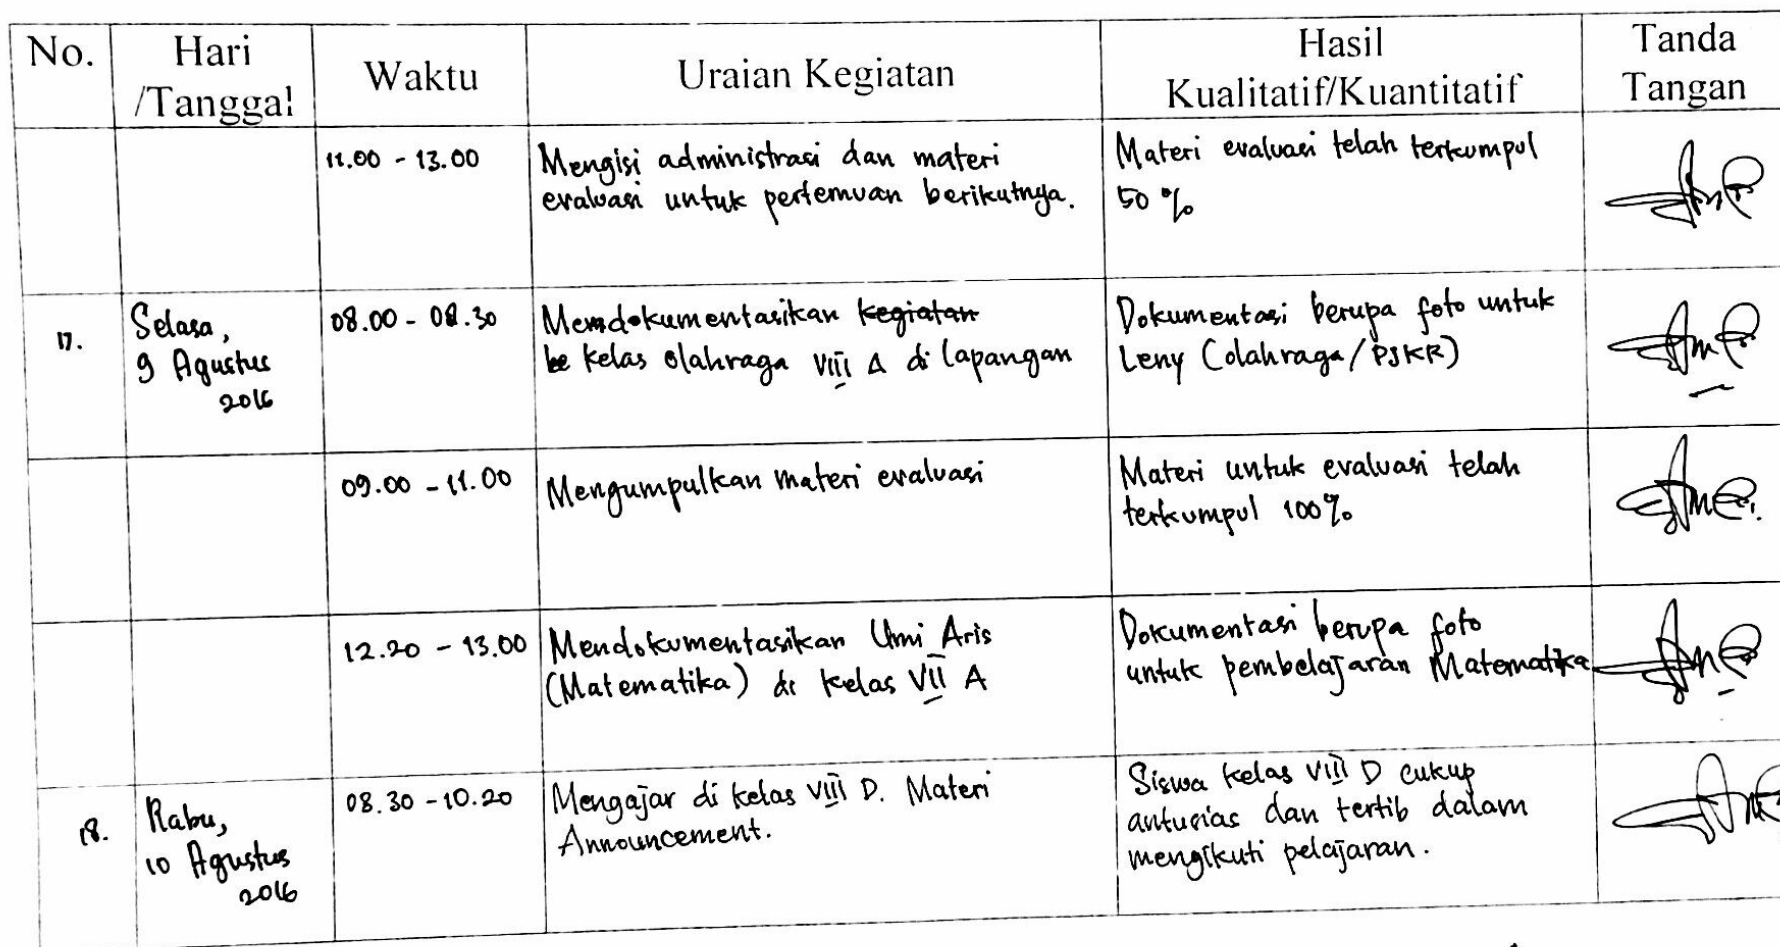 No. Hari /Tanggal Waktu Uraian Kegiatan Hasil Kualitatif/Kuantitatif Tanda Tangan
11.00 - 13.00
Mengisi administrasi dan materi
evaluasi untuk pertemuan berikutnya.
Materi evaluasi telah terkumpul
50 %
17.
Selasa,
9 Agustus
2016
08.00 - 08.30
Mendokumentasikan kegiatan
ke kelas olahraga VIII A di lapangan
Dokumentasi berupa foto untuk
Leny (olahraga/PJKR)
09.00 - 11.00
Mengumpulkan materi evaluasi
Materi untuk evaluasi telah
terkumpul 100%
12.20 - 13.00
Mendokumentasikan Umi Aris
(Matematika) di kelas VII A
Dokumentasi berupa foto
untuk pembelajaran Matematika
18.
Rabu,
10 Agustus
2016
08.30 - 10.20
Mengajar di kelas VIII D. Materi
Announcement.
Siswa kelas VIII D cukup
antusias dan tertib dalam
mengikuti pelajaran.